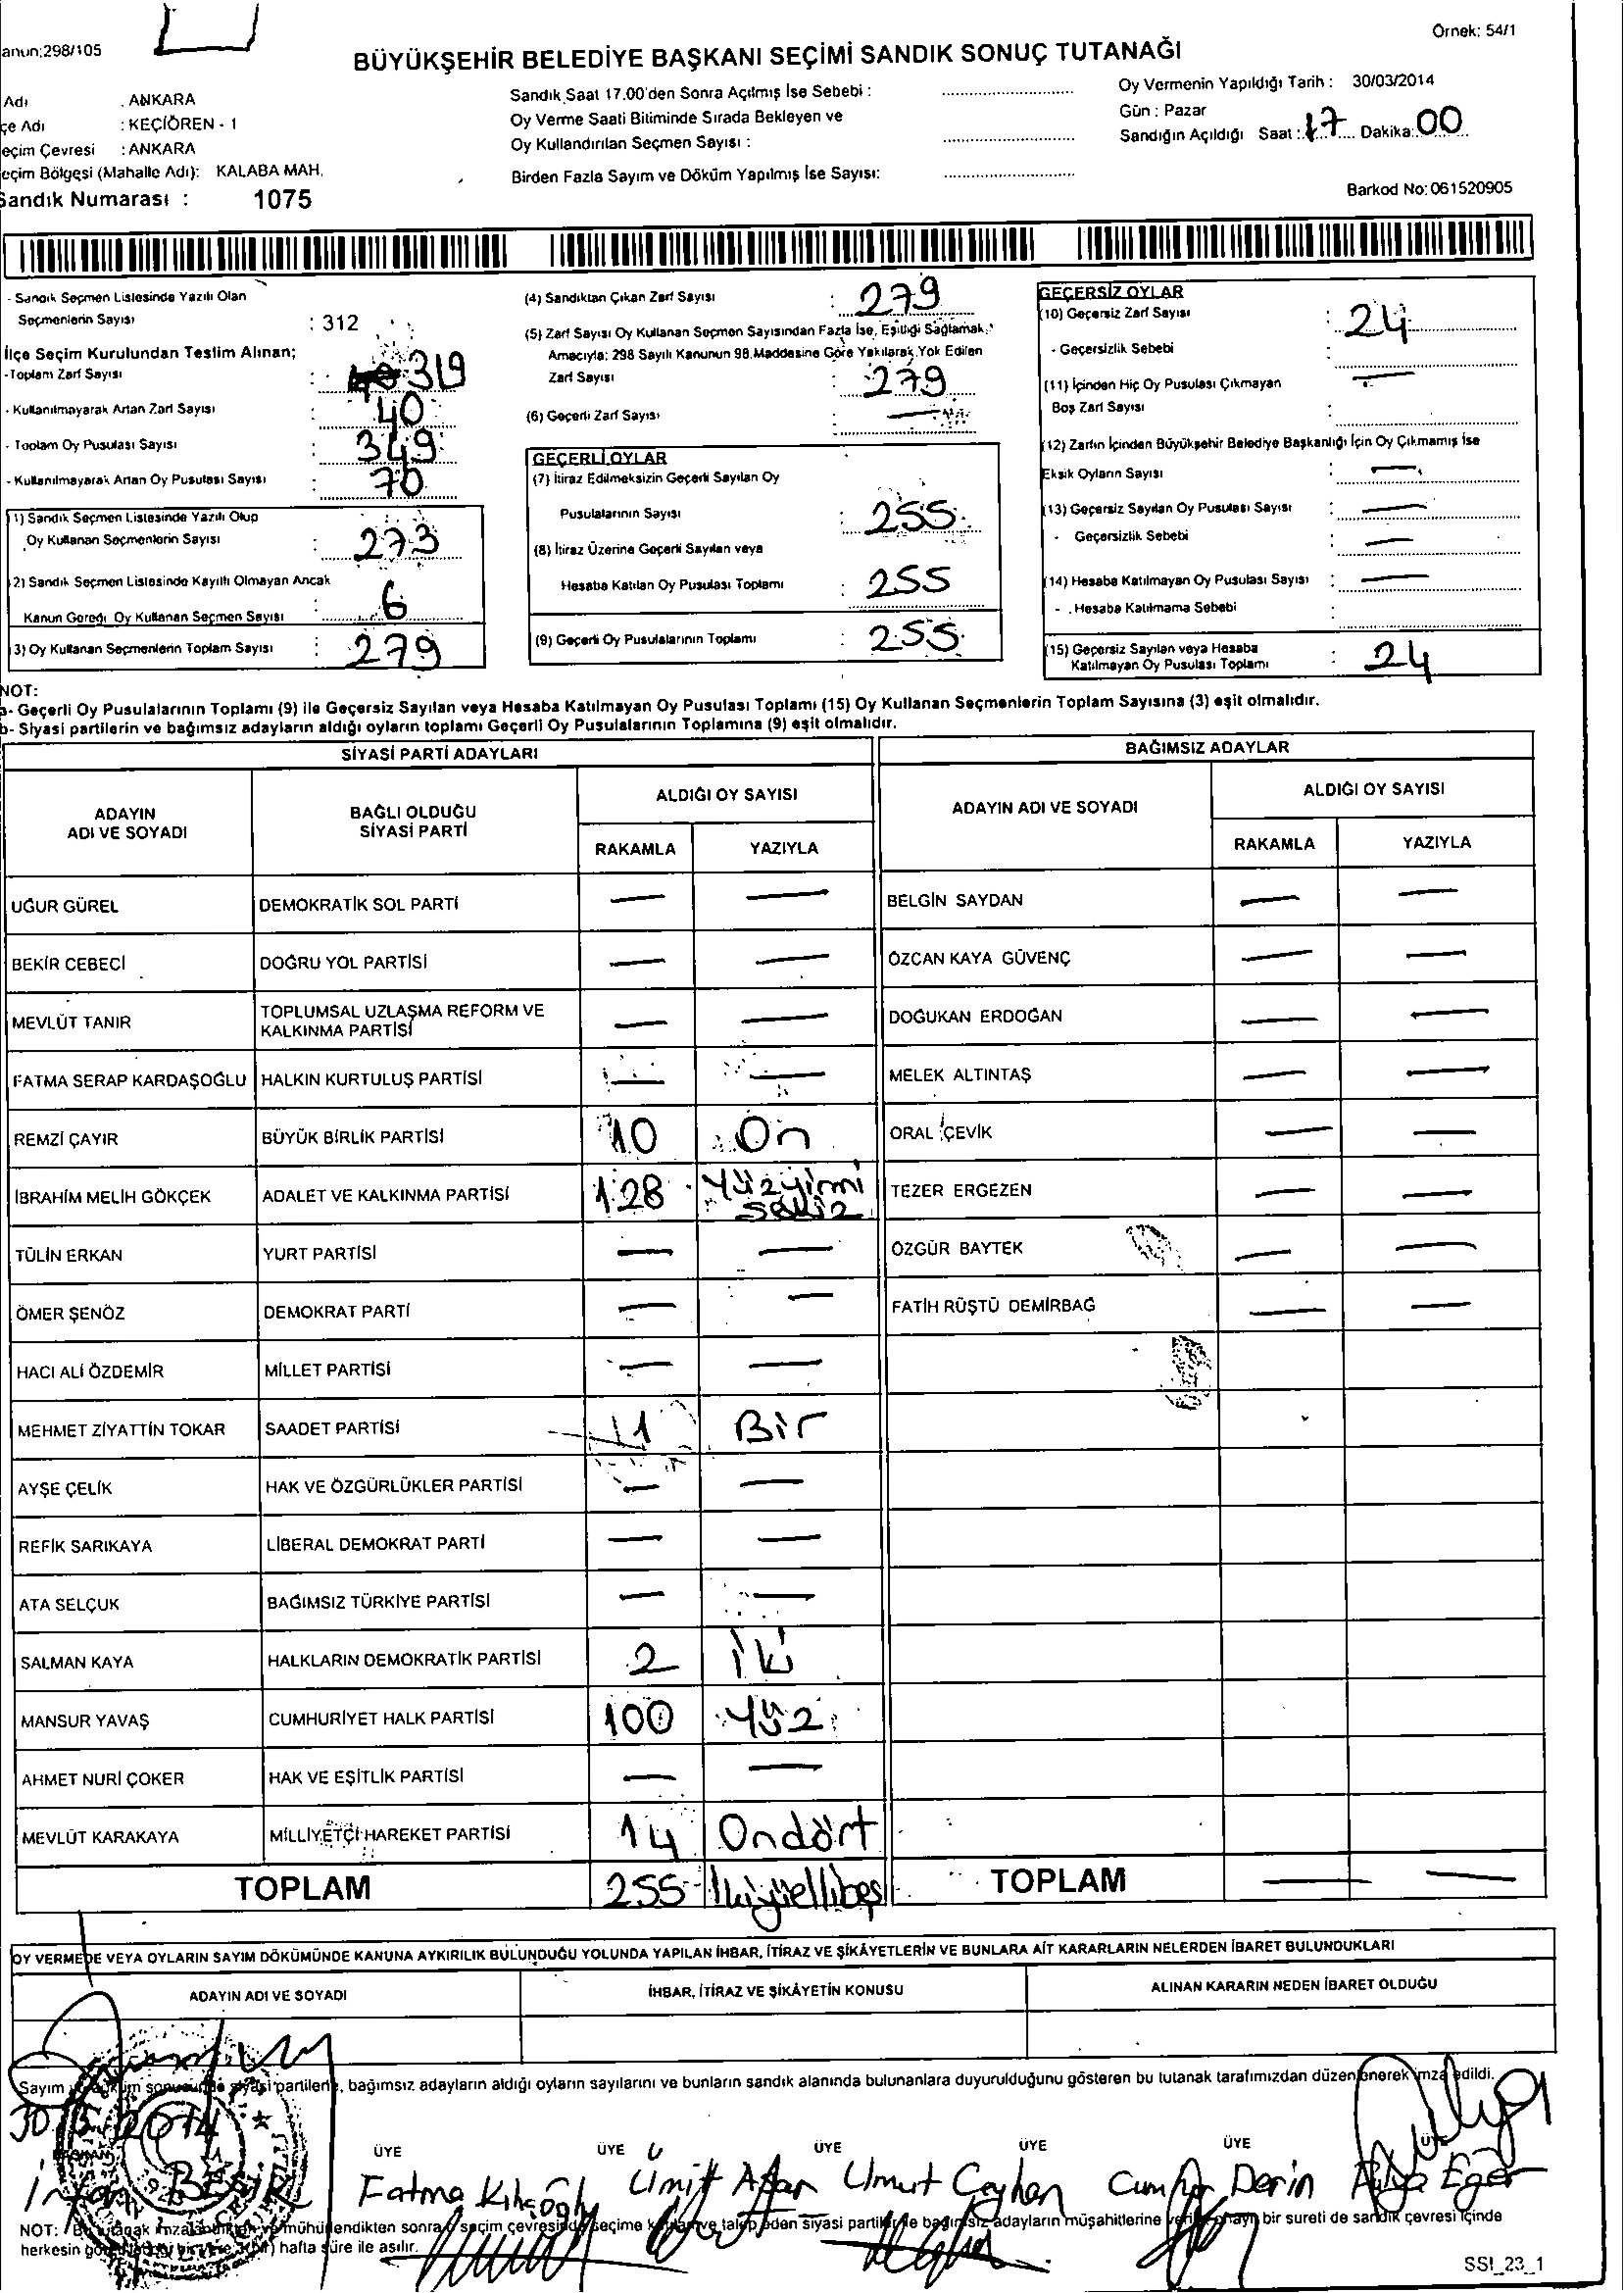 anun;298/105
Örnek: 54/1
BÜYÜKŞEHİR BELEDİYE BAŞKANI SEÇİMİ SANDIK SONUÇ TUTANAĞI
Adı : ANKARA
çe Adı : KEÇİÖREN - 1
eçim Çevresi : ANKARA
eçim Bölgesi (Mahalle Adı): KALABA MAH.
Sandık Numarası : 1075
Sandık Saat 17.00'den Sonra Açılmış İse Sebebi :
Oy Verme Saati Bitiminde Sırada Bekleyen ve
Oy Kullandırılan Seçmen Sayısı :
Birden Fazla Sayım ve Döküm Yapılmış İse Sayısı:
Oy Vermenin Yapıldığı Tarih : 30/03/2014
Gün : Pazar
Sandığın Açıldığı Saat : 17 Dakika: 00
Barkod No: 061520905
- Sandık Seçmen Listesinde Yazılı Olan
Seçmenlerin Sayısı : 312
İlçe Seçim Kurulundan Teslim Alınan;
-Toplam Zarf Sayısı : 319
- Kullanılmayarak Artan Zarf Sayısı : 40
- Toplam Oy Pusulası Sayısı : 349
- Kullanılmayarak Artan Oy Pusulası Sayısı : 70
1) Sandık Seçmen Listesinde Yazılı Olup
Oy Kullanan Seçmenlerin Sayısı : 273
2) Sandık Seçmen Listesinde Kayıtlı Olmayan Ancak
Kanun Gereği Oy Kullanan Seçmen Sayısı : 6
3) Oy Kullanan Seçmenlerin Toplam Sayısı : 279
(4) Sandıktan Çıkan Zarf Sayısı : 279
(5) Zarf Sayısı Oy Kullanan Seçmen Sayısından Fazla İse, Eşitliği Sağlamak
Amacıyla; 298 Sayılı Kanunun 98.Maddesine Göre Yakılarak Yok Edilen
Zarf Sayısı : 279
(6) Geçerli Zarf Sayısı : —
GEÇERLİ OYLAR
(7) İtiraz Edilmeksizin Geçerli Sayılan Oy
Pusulalarının Sayısı : 255
(8) İtiraz Üzerine Geçerli Sayılan veya
Hesaba Katılan Oy Pusulası Toplamı : 255
(9) Geçerli Oy Pusulalarının Toplamı : 255
GEÇERSİZ OYLAR
(10) Geçersiz Zarf Sayısı : 24
- Geçersizlik Sebebi :
(11) İçinden Hiç Oy Pusulası Çıkmayan —
Boş Zarf Sayısı :
(12) Zarfın İçinden Büyükşehir Belediye Başkanlığı İçin Oy Çıkmamış İse
Eksik Oyların Sayısı : —
(13) Geçersiz Sayılan Oy Pusulası Sayısı : —
- Geçersizlik Sebebi : —
(14) Hesaba Katılmayan Oy Pusulası Sayısı : —
- Hesaba Katılmama Sebebi :
(15) Geçersiz Sayılan veya Hesaba
Katılmayan Oy Pusulası Toplamı : 24
NOT:
a- Geçerli Oy Pusulalarının Toplamı (9) ile Geçersiz Sayılan veya Hesaba Katılmayan Oy Pusulası Toplamı (15) Oy Kullanan Seçmenlerin Toplam Sayısına (3) eşit olmalıdır.
b- Siyasi partilerin ve bağımsız adayların aldığı oyların toplamı Geçerli Oy Pusulalarının Toplamına (9) eşit olmalıdır.
SİYASİ PARTİ ADAYLARI BAĞIMSIZ ADAYLAR
ADAYIN ADI VE SOYADI BAĞLI OLDUĞU SİYASİ PARTİ ALDIĞI OY SAYISI ADAYIN ADI VE SOYADI ALDIĞI OY SAYISI
RAKAMLA YAZIYLA RAKAMLA YAZIYLA
UĞUR GÜREL DEMOKRATİK SOL PARTİ — — BELGİN SAYDAN — —
BEKİR CEBECİ DOĞRU YOL PARTİSİ — — ÖZCAN KAYA GÜVENÇ — —
MEVLÜT TANIR TOPLUMSAL UZLAŞMA REFORM VE KALKINMA PARTİSİ — — DOĞUKAN ERDOĞAN — —
FATMA SERAP KARDAŞOĞLU HALKIN KURTULUŞ PARTİSİ — — MELEK ALTINTAŞ — —
REMZİ ÇAYIR BÜYÜK BİRLİK PARTİSİ 10 On ORAL ÇEVİK — —
İBRAHİM MELİH GÖKÇEK ADALET VE KALKINMA PARTİSİ 128 Yüzyirmi sekiz TEZER ERGEZEN — —
TÜLİN ERKAN YURT PARTİSİ — — ÖZGÜR BAYTEK — —
ÖMER ŞENÖZ DEMOKRAT PARTİ — — FATİH RÜŞTÜ DEMİRBAĞ — —
HACI ALİ ÖZDEMİR MİLLET PARTİSİ — —
MEHMET ZİYATTİN TOKAR SAADET PARTİSİ 1 Bir
AYŞE ÇELİK HAK VE ÖZGÜRLÜKLER PARTİSİ — —
REFİK SARIKAYA LİBERAL DEMOKRAT PARTİ — —
ATA SELÇUK BAĞIMSIZ TÜRKİYE PARTİSİ — —
SALMAN KAYA HALKLARIN DEMOKRATİK PARTİSİ 2 İki
MANSUR YAVAŞ CUMHURİYET HALK PARTİSİ 100 Yüz
AHMET NURİ ÇOKER HAK VE EŞİTLİK PARTİSİ — —
MEVLÜT KARAKAYA MİLLİYETÇİ HAREKET PARTİSİ 14 Ondört
TOPLAM 255 İkiyüzellibeş TOPLAM — —
OY VERMEDE VEYA OYLARIN SAYIM DÖKÜMÜNDE KANUNA AYKIRILIK BULUNDUĞU YOLUNDA YAPILAN İHBAR, İTİRAZ VE ŞİKÂYETLERİN VE BUNLARA AİT KARARLARIN NELERDEN İBARET BULUNDUKLARI
ADAYIN ADI VE SOYADI İHBAR, İTİRAZ VE ŞİKÂYETİN KONUSU ALINAN KARARIN NEDEN İBARET OLDUĞU
Sayım döküm sonucunda siyasi partilerin, bağımsız adayların aldığı oyların sayılarını ve bunların sandık alanında bulunanlara duyurulduğunu gösteren bu tutanak tarafımızdan düzenlenerek imza edildi.
ÜYE ÜYE ÜYE ÜYE ÜYE
Fatma Kılıçoğlu Ümit Umut Ceyhan Derin Eger
NOT: Bu tutanak imzalandıktan ve mühürlendikten sonra seçim çevresinde seçime katılan ve talep eden siyasi partiler ile bağımsız adayların müşahitlerine bir sureti de sandık çevresi içinde
herkesin hafta süre ile asılır.
SSI_23_1